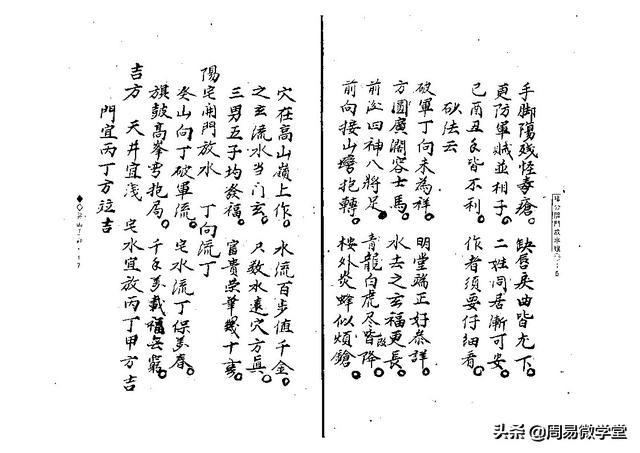 手脚傷殘怪毒瘡。 缺唇吳曲皆尤下。
更防軍賊並相子。 二姓同居漸可安。
巳酉丑年皆不利。 作者須要仔細看。
砂法云
破軍丁向未為祥 明堂端正好恭詳
方圓廣濶容士馬。 水去之玄福更長
前四神八將足。 青龍白虎尽皆降
前向接山彎抱轉。 樓外炎蜂似煩鎗。
穴在高山嶺上作。 水流百步值千金。
之玄流水当门玄。 只教水遠穴方真。
三男五子均發福。 富貴榮華幾十
陽宅開門放水 丁向流丁
癸山向丁破軍流。 宅水流丁保萬春。
旗鼓高峯弯抱局。 千年萬載福無窮。
吉方 天井宜浅 宅水宜放丙丁甲方吉
門宜丙丁方位吉
头条 @周易微学堂